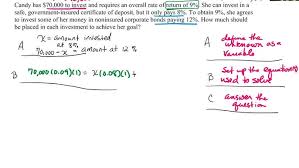 Candy has $70,000 to invest and requires an overall rate of return of 9%. She can invest in
a safe, government-insured certificate of deposit, but it only pays 8%. To obtain 9%, she agrees
to invest some of her money in noninsured corporate bonds paying 12%. How much should
be placed in each investment to achieve her goal?
A x = amount invested
at 8%
70,000 - x = amount at 12%
B 70,000(0.09)(1) = x(0.08)(1) +
A define the
unknown as a
variable
B Set up the equation(s)
used to solve
C answer the
question